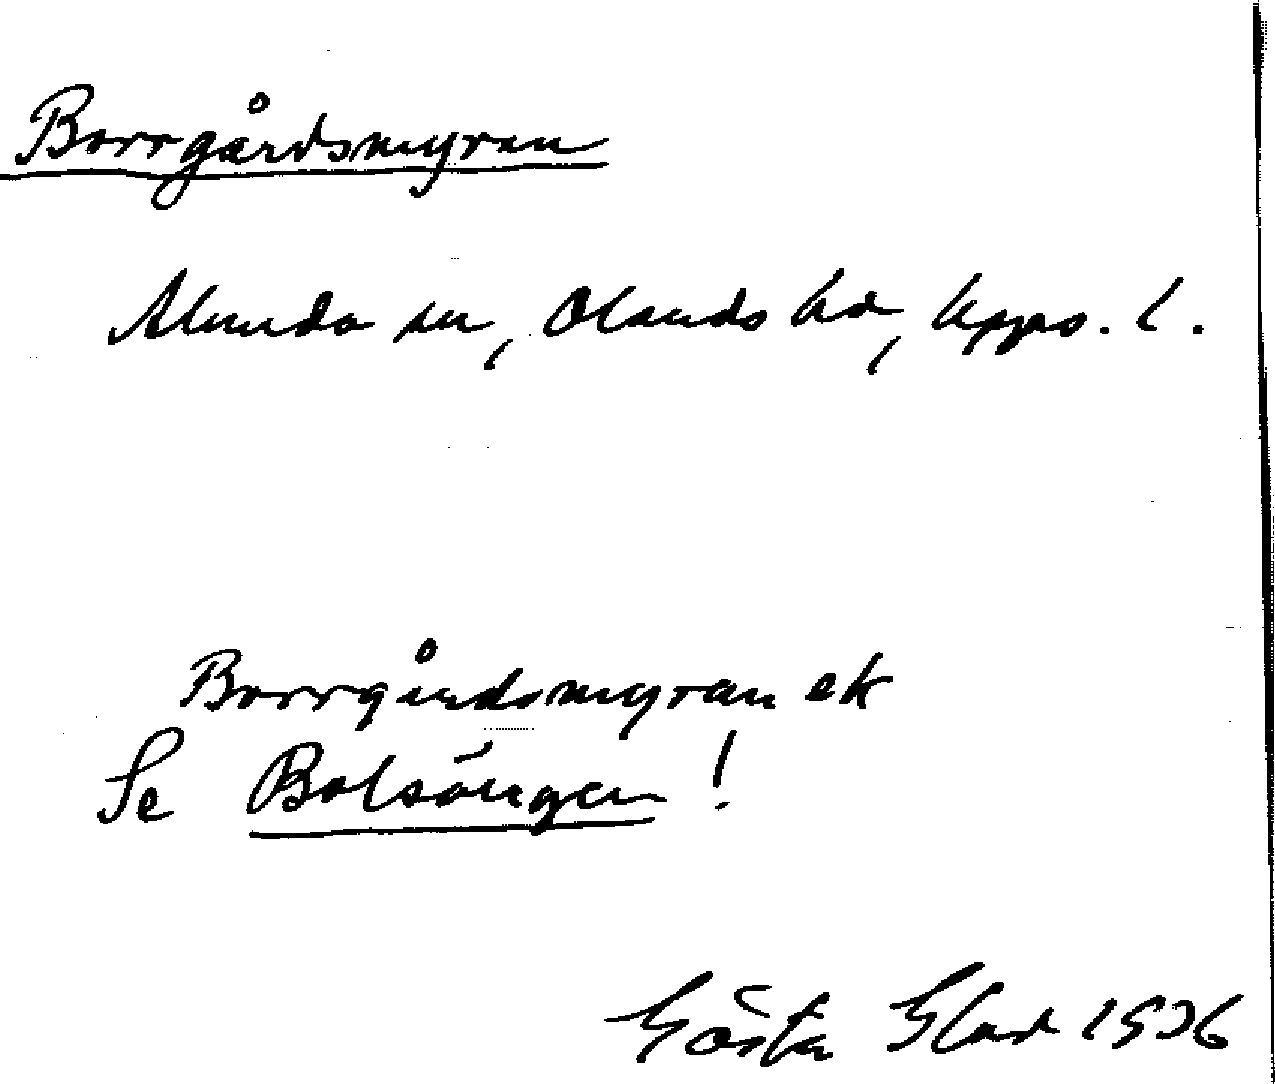 Borrgårdsmyran
Alunda sn, Olands hd, Upps. l.
Borrgårdsmyran ek
Se Bolsängen!
Gösta 1936